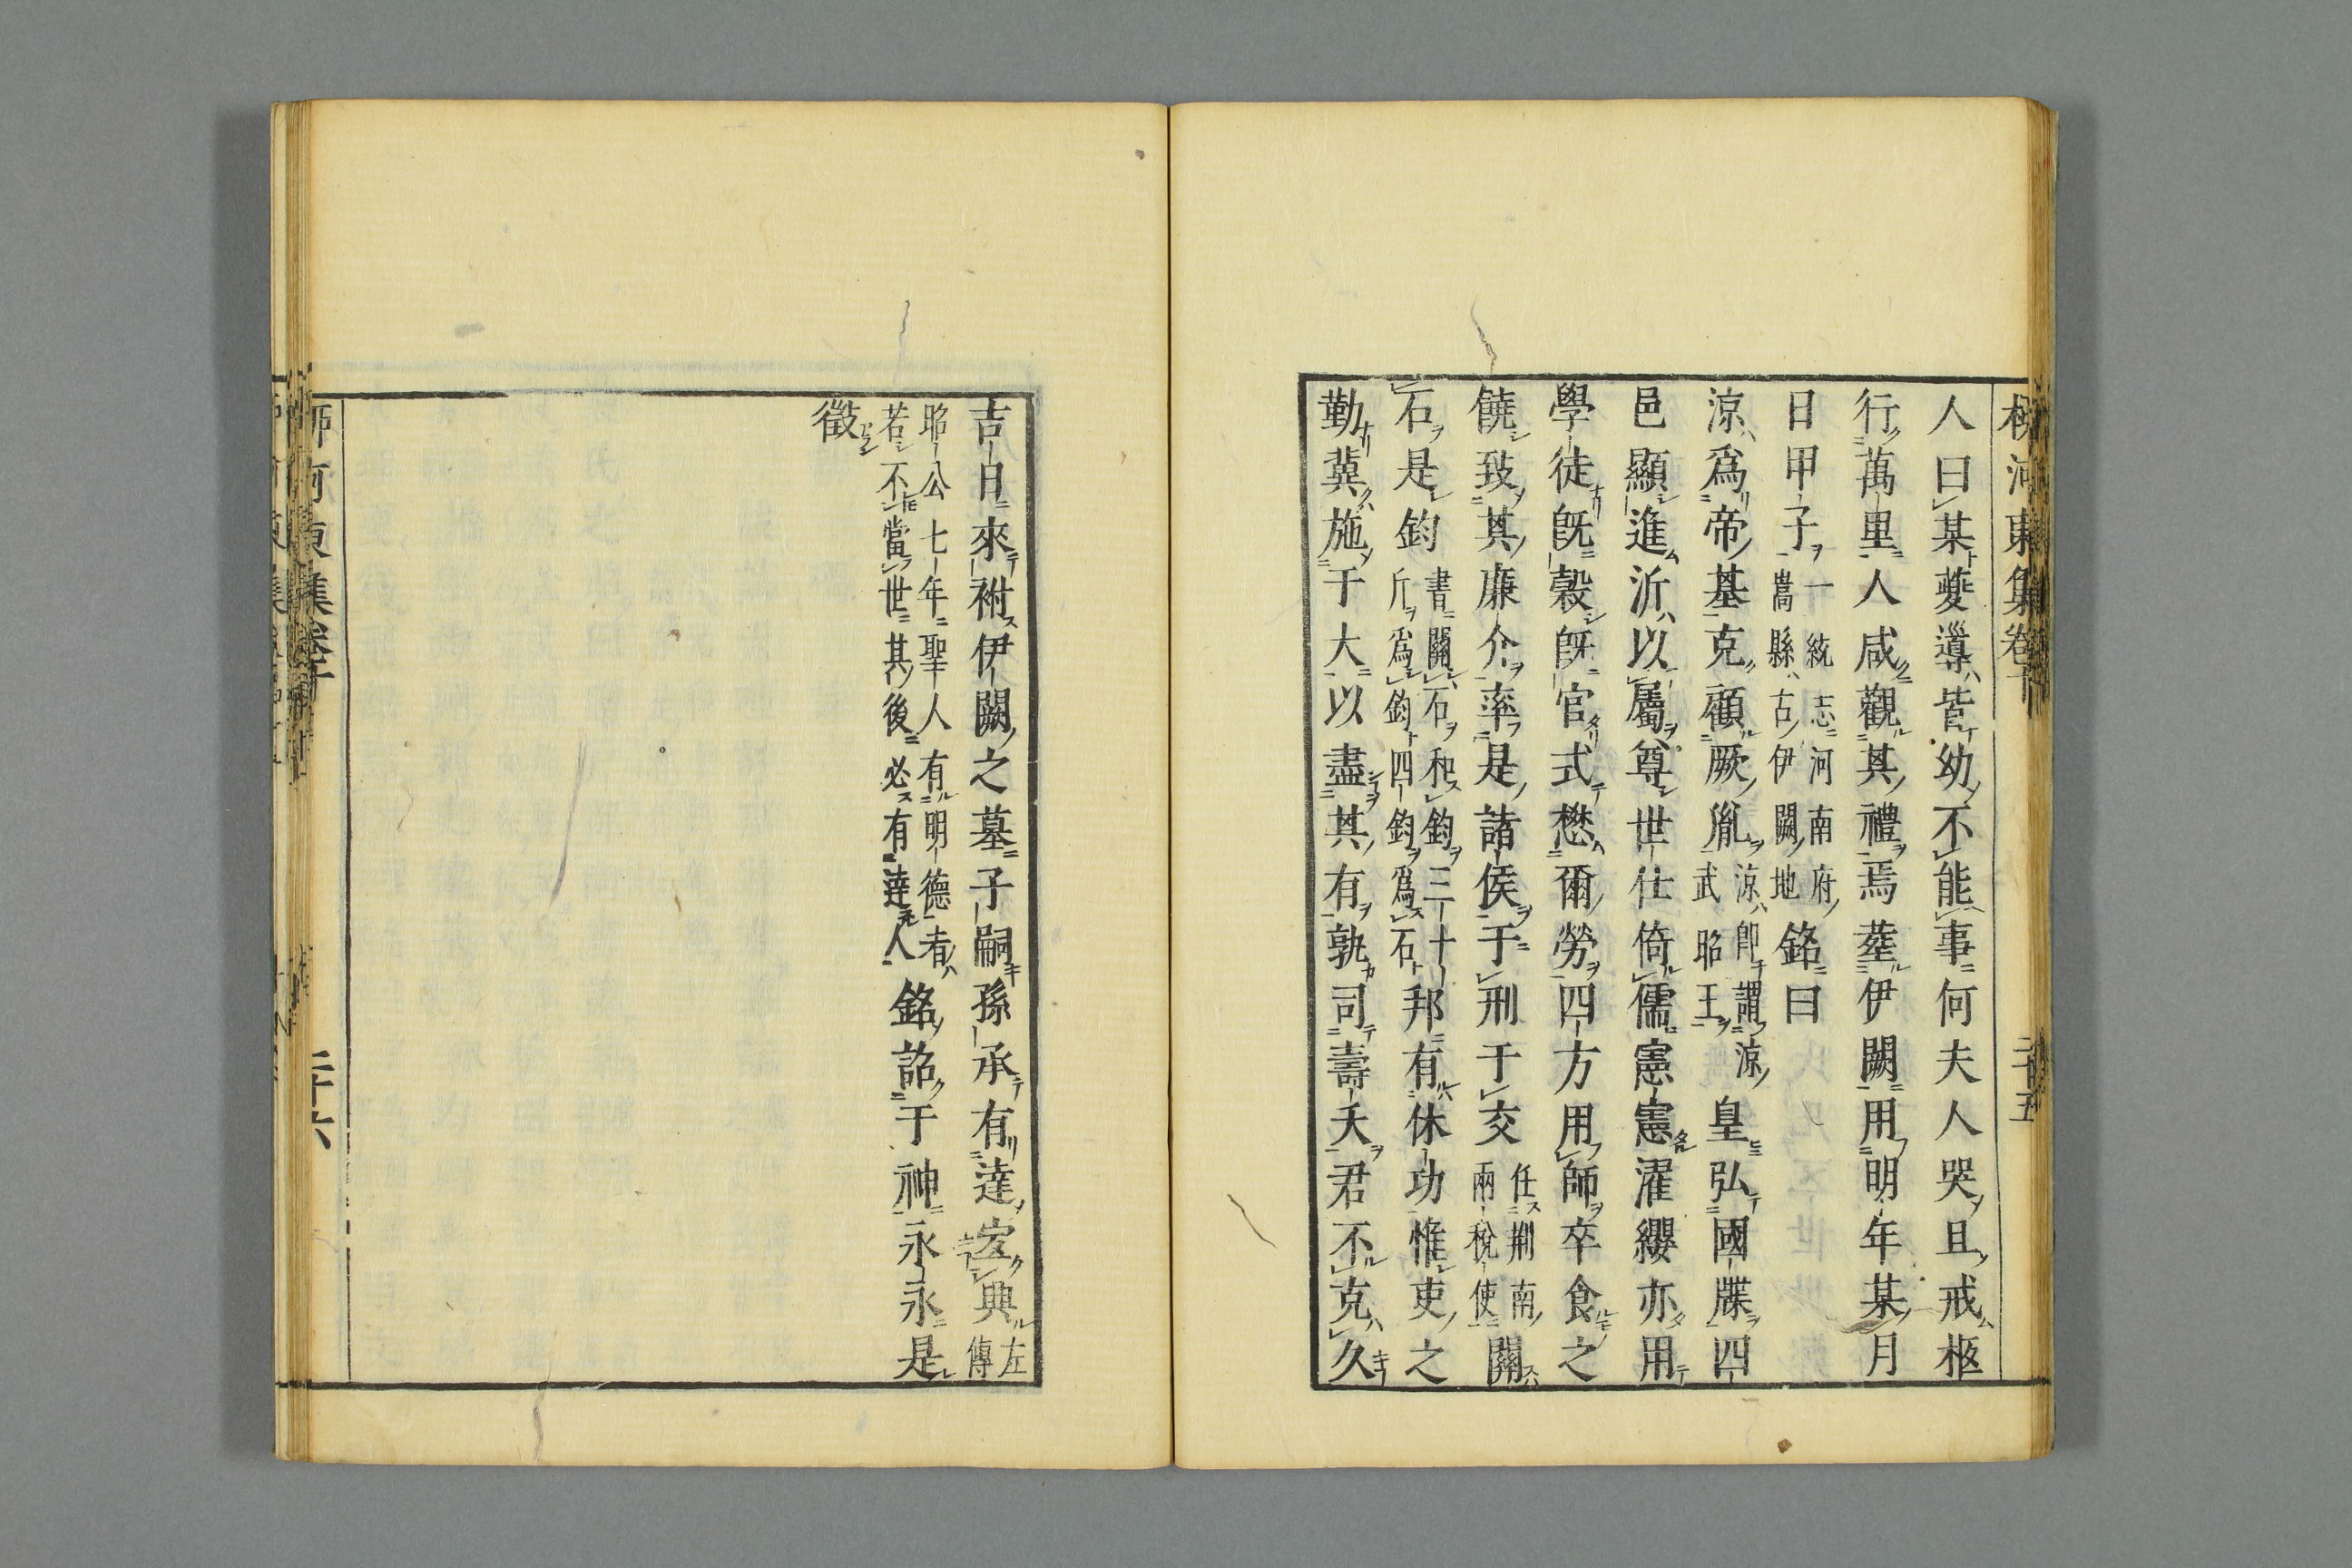 柳河東集卷十 二十五
人曰某夔導皆幼不能事何夫人哭且戒柩
行萬里人咸觀其禮焉葬伊闕用明年某月
日甲子一統志河南府嵩縣古伊闕地銘曰
涼爲帝基克顧厥胤涼卽謂涼武昭王皇弘國牒四
邑顯進沂以屬尊世仕倚儒憲憲濯纓亦用
學徒旣穀旣官式懋爾勞四方用師卒食之
饒致其廉介率是諸侯于刑于交任荆南兩稅使關
石是鈞書關石和鈞三十斤爲鈞四鈞爲石邦有休功惟吏之
勤冀施于大以盡其有孰司壽夭君不克久
吉日來祔伊闕之墓子嗣孫承有達宜興左傳
昭公七年聖人有明德者若不當世其後必有達人銘詔于神永永是
徵
河東集卷十 二十六